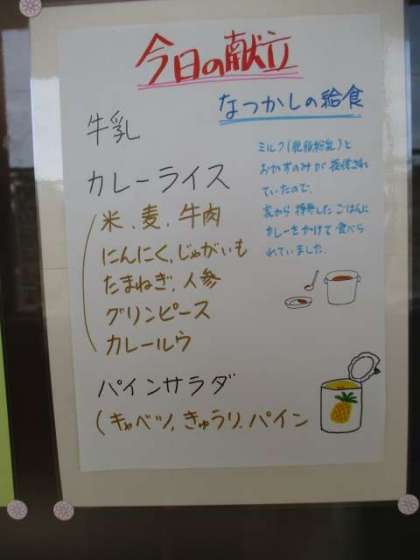 今日の献立
なつかしの給食
牛乳
ミルク(脱脂粉乳)と
おかずのみが提供され
ていたので、
家から持参したごはんに
カレーをかけて食べら
れていました。
カレーライス
(米、麦、牛肉
にんにく、じゃがいも
たまねぎ、人参
グリンピース
カレールウ
パインサラダ
(キャベツ、きゅうり、パイン